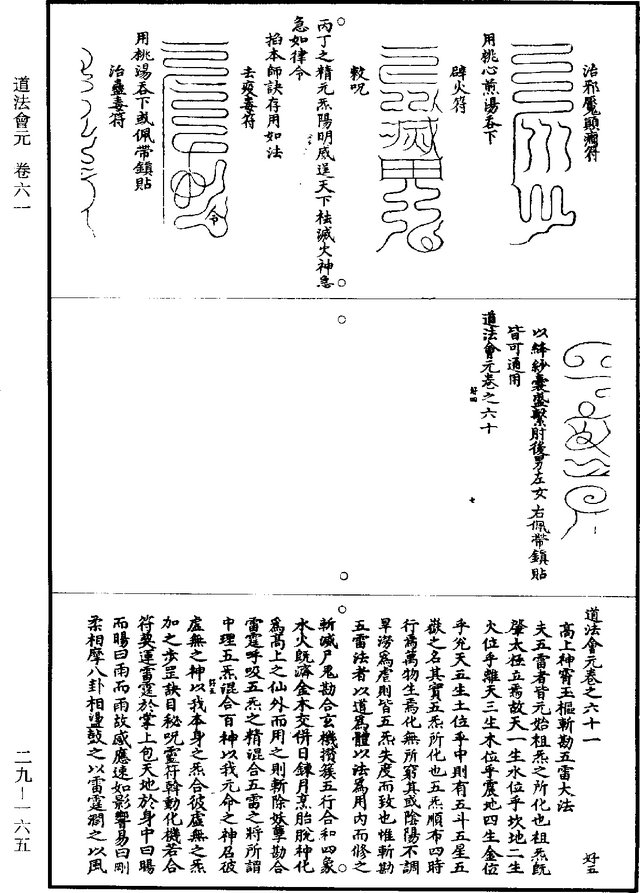 治邪魘顛癇符
用桃心煎湯吞下
辟火符
敕呪
丙丁之精元炁陽明威逞天下祛滅火神急
急如律令
掐本師訣存用如法
去疫毒符
用桃湯吞下或佩帶鎮貼
治蠱毒符
以絳紗囊盛繫肘後男左女右佩帶鎮貼
皆可通用
道法會元卷之六十
好四
七
道法會元卷之六十一
好五
高上神霄玉樞斬勘五雷大法
夫五雷者皆元始祖炁之所化也祖炁既
肇太極立焉故天一生水位乎坎地二生
火位乎離天三生木位乎震地四生金位
乎兌天五生土位乎中則有五斗五星五
嶽之名其實五炁所化也五炁順布四時
行焉萬物生焉化無所窮其或陰陽不調
旱澇為虐則皆五炁失度而致也惟斬勘
五雷法者以道為體以法為用內而修之
斬滅尸鬼勘合玄機攢簇五行合和四象
水火既濟金木交併日鍊月烹胎脫神化
為高上之仙外而用之則斬除妖孽勘合
雷霆呼吸五炁之精混合五雷之將所謂
中理五炁混合百神以我元命之神召彼
虛無之神以我本身之炁合彼虛無之炁
加之步罡訣目秘呪靈符斡動化機若合
符契運雷霆於掌上包天地於身中曰暘
而暘曰雨而雨故感應速如影響易曰剛
柔相摩八卦相盪鼓之以雷霆潤之以風
道法會元 卷六一
二九—一六五